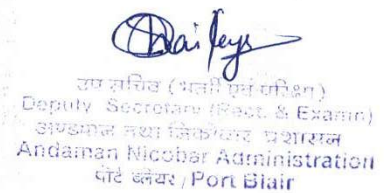 उप सचिव (भर्ती एवं परीक्षण)
Deputy Secretary (Rect. & Examn)
अण्डमान तथा निकोबार प्रशासन
Andaman Nicobar Administration
पोर्ट ब्लेयर / Port Blair